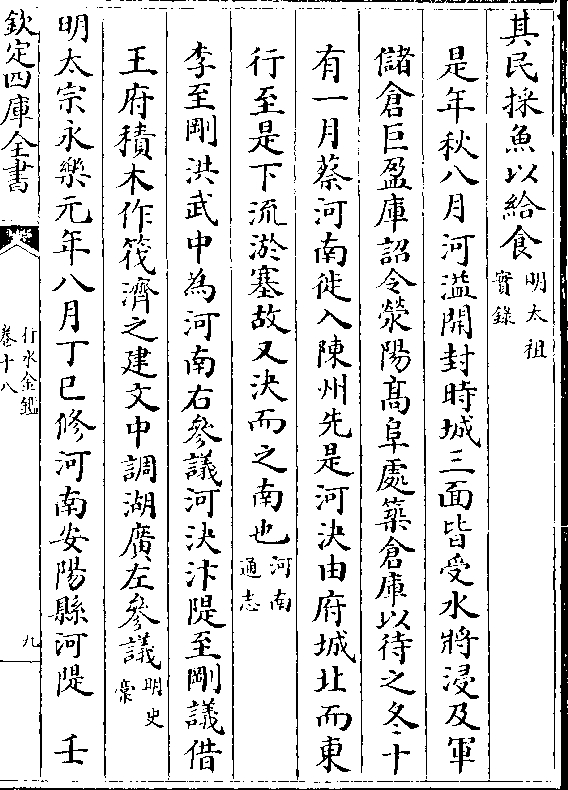 其民採魚以給食明太祖實錄
是年秋八月河溢開封時城三面皆受水將浸及軍
儲倉巨盈庫詔令滎陽高阜處築倉庫以待之冬十
有一月蔡河南徙入陳州先是河決由府城北而東
行至是下流淤塞故又決而之南也河南通志
李至剛洪武中為河南右參議河決汴隄至剛議借
王府積木作筏濟之建文中調湖廣左參議明史稾
明太宗永樂元年八月丁巳修河南安陽縣河隄 壬
欽定四庫全書
行水金鑑
卷十八
九